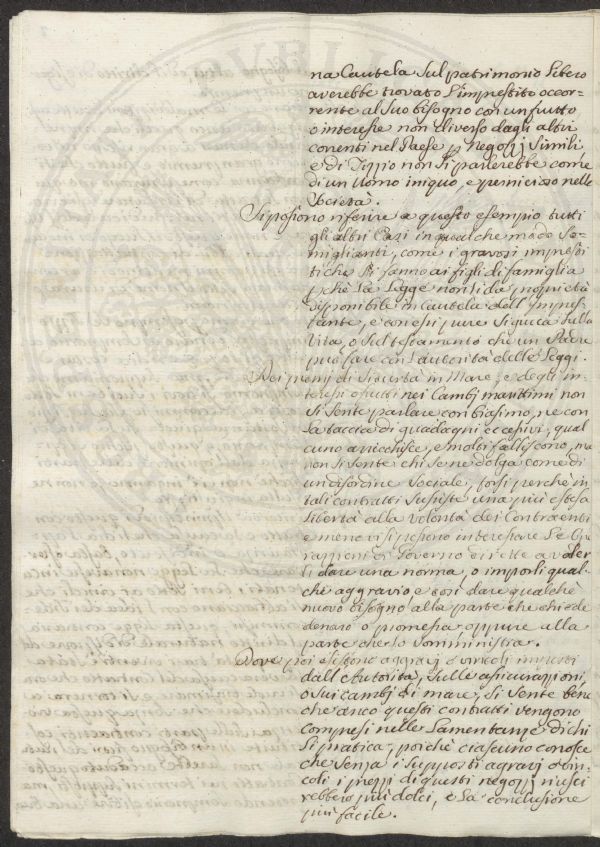 na Cautela Sul patrimonio libero
averebbe trovato l'imprestito occor-
rente al Suo bisogno con un frutto
o interesse non diverso dagli altri
correnti nel Paese p negozj Simili
e di Tizzio non Si parlerebbe come
di un Uomo iniquo, e pernicioso nella
Società.
Si possono riferire a questo esempio tutti
gli altri Casi in qualche modo So-
miglianti, come i gravosi impresti
ti che Si fanno ai figli di famiglia
pchè la Legge non li dà proprietà
disponibile in Cautela dell'Impres-
tante, e con essi pure Si giuca Sulla
Vita, o Sul testamento che un Padre
può fare con l'autorità delle Leggi.
Dei premj di Sicurtà in Mare, e degli in-
teressi o frutti nei Cambj marittimi non
Si Sente parlare con biasimo, ne con
la taccia di guadagni eccessivi, qual
cuno aricchisce, e molti falliscono, ma
non Si Sente chi Se ne dolga come di
un disordine Sociale, forsi perchè in
tali contratti Sussiste una più estesa
libertà alla volontà dei Contraenti
e meno vi Si possono interessare Le
di Governo dirette a voler
li dare una norma, o imporli qual-
che aggravio e così dare qualchè
nuovo bisogno alla parte che chiede
denaro o promessa oppure alla
parte che lo Somministra.
Dove poi esistono aggravj o vincoli imposti
dall'Autorità, Sulle assicurazioni,
o Sui cambj di mare, Si Sente bene
che anco questi contratti vengono
compresi nelle Lamentanze di chi
Si pratica, poichè ciascuno conosce
che Senza i Supposti agravj o vin-
coli i prezzi di questi negozj riusci
rebbero più dolci, e la conclusione
più facile.